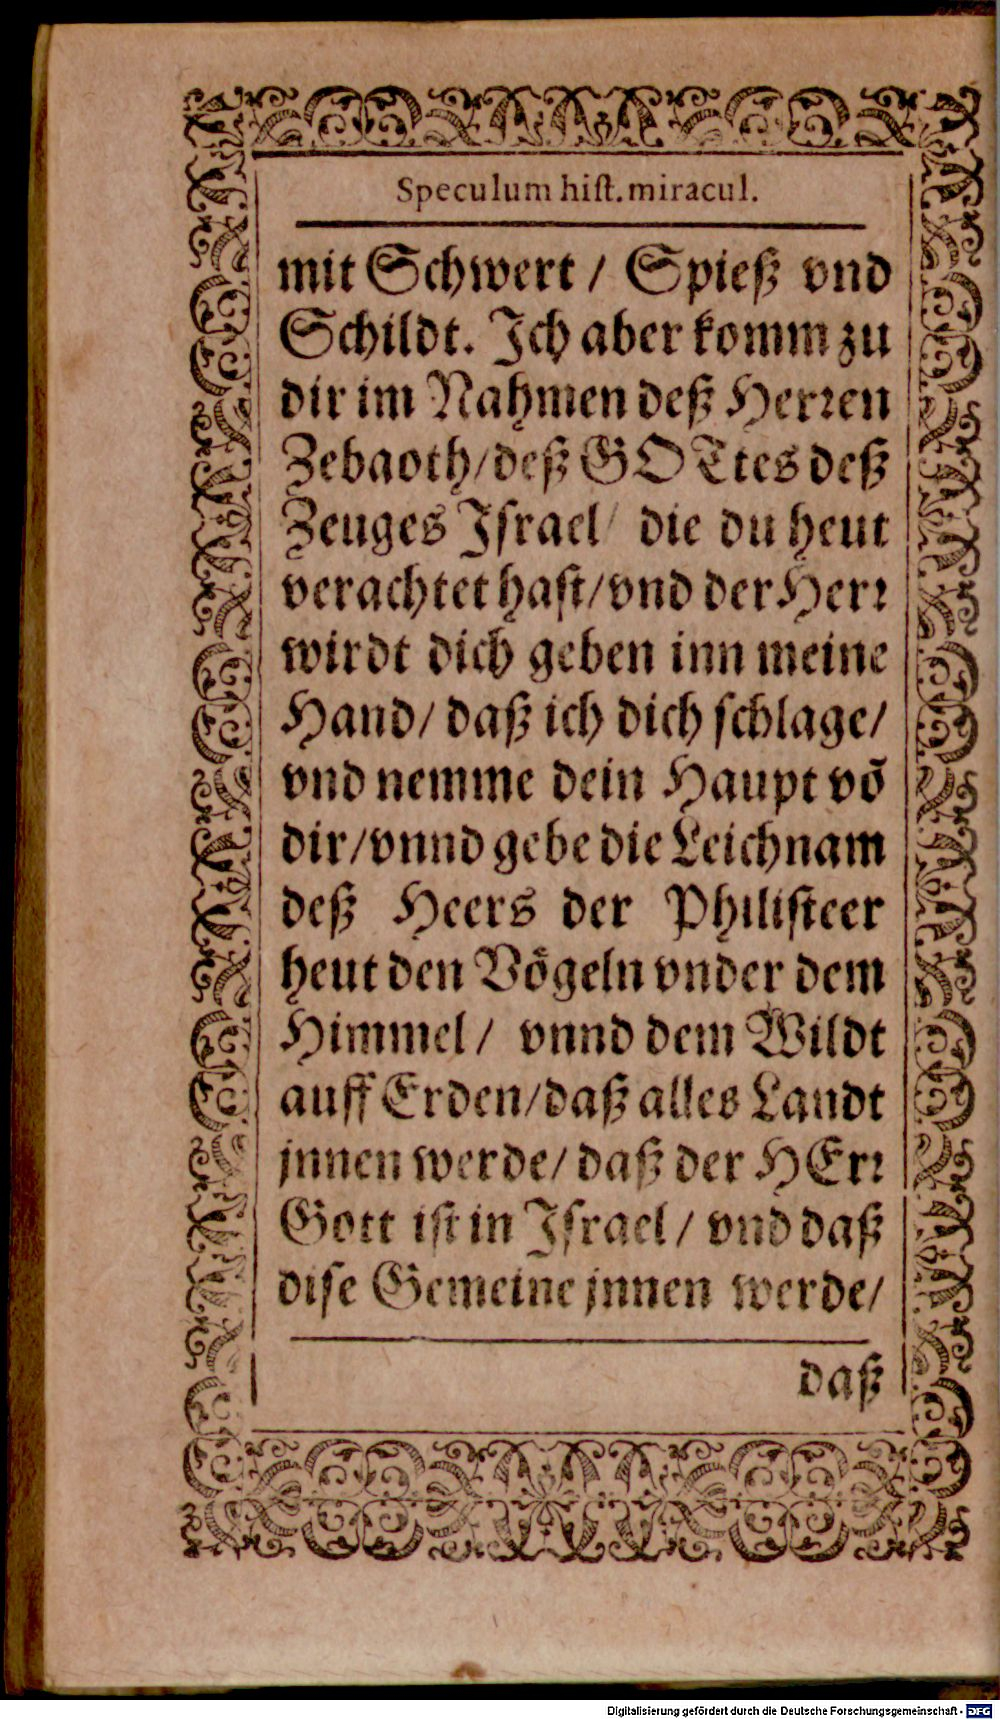 Speculum hiſt. miracul.
mit Schwert / Spieß vnd
Schildt. Ich aber komm zu
dir im Nahmen deß Herꝛen
Zebaoth/deß GOTtes deß
Zeuges Iſrael/ die du heut
verachtet haſt/vnd der Herꝛ
wirdt dich geben inn meine
Hand/ daß ich dich ſchlage/
vnd nemme dein Haupt võ
dir/vnnd gebe die Leichnam
deß Heers der Philiſteer
heut den Vögeln vnder dem
Himmel/ vnnd dem Wildt
auff Erden/daß alles Landt
jnnen werde/ daß der HErꝛ
Gott iſt in Iſrael/ vnd daß
diſe Gemeine jnnen werde/
daß
Digitalisierung gefördert durch die Deutsche Forschungsgemeinschaft - DFG